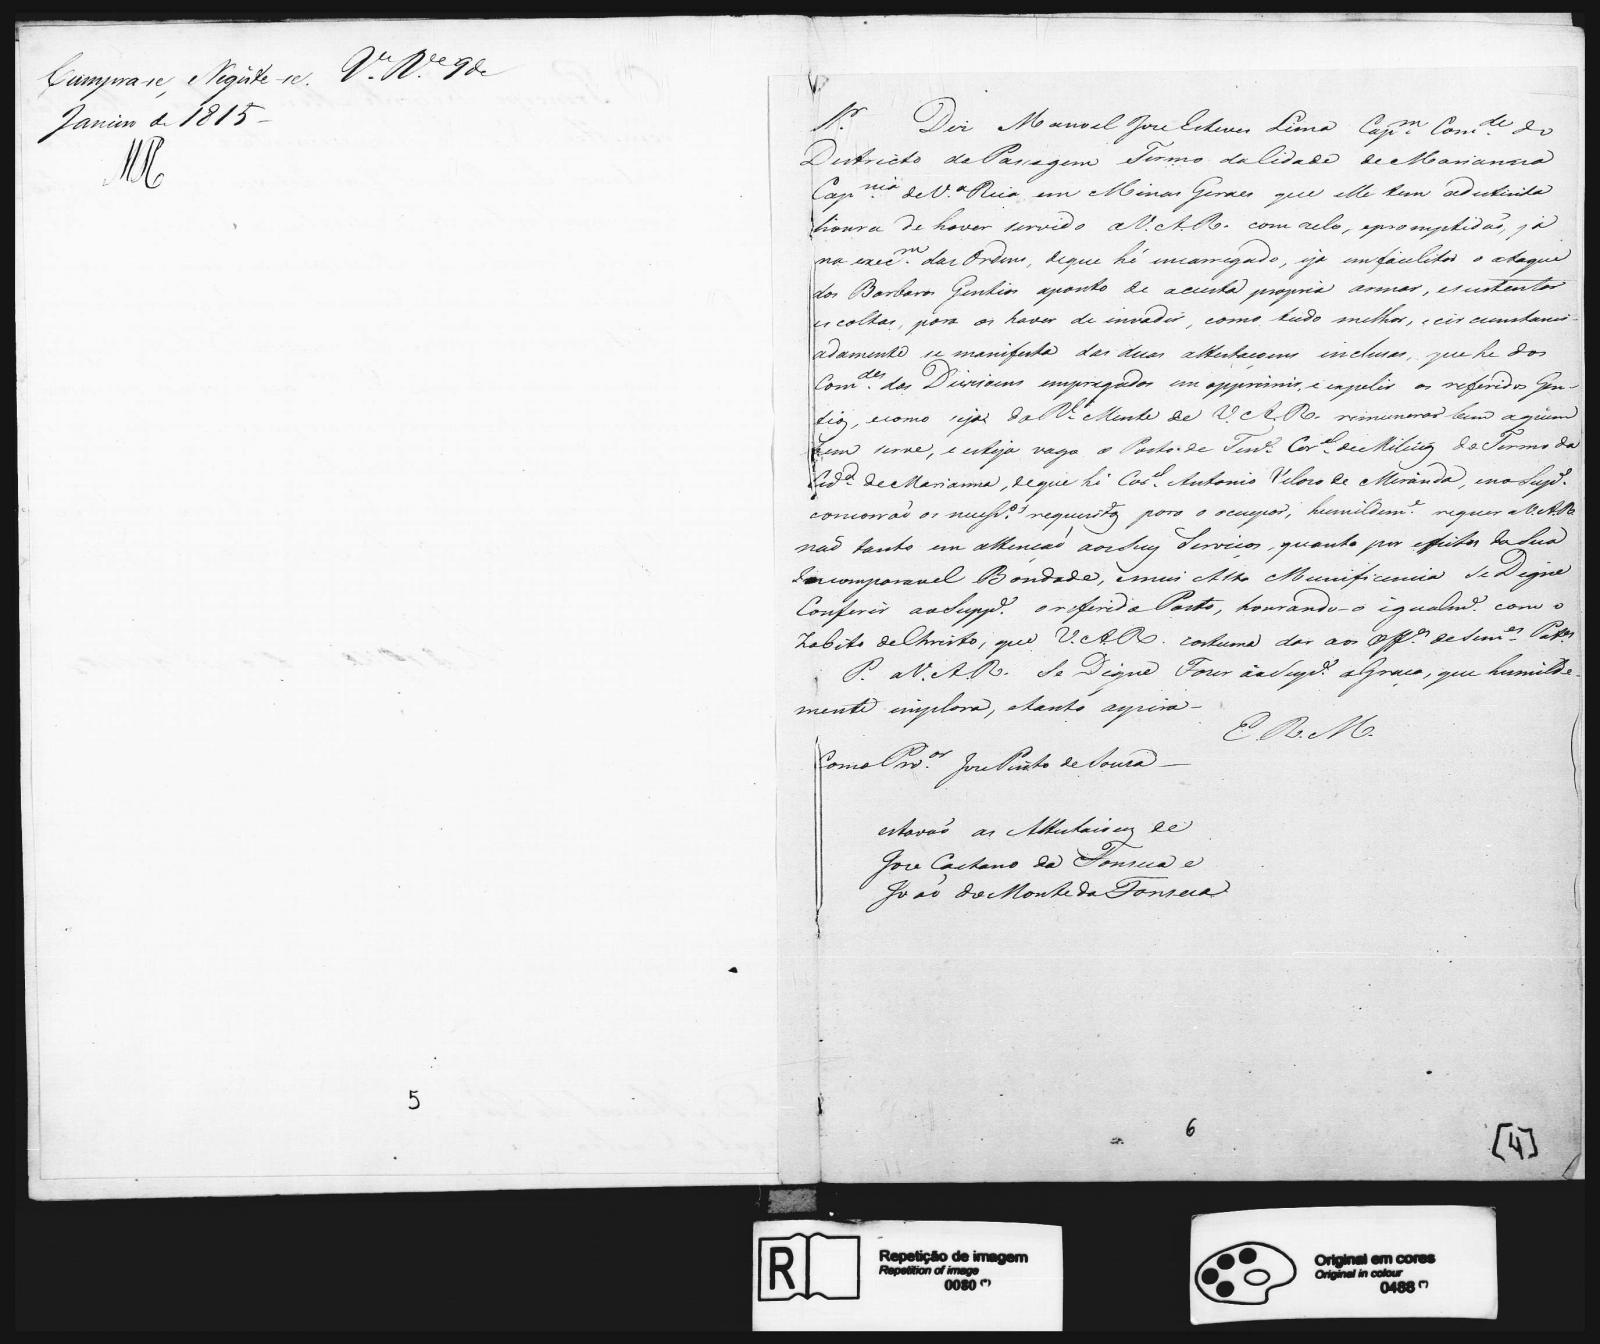 Cumpra-se, Registe-se. Va. Ra. 9 de
Janeiro de 1815-
5
Sr.
Diz Manoel Joze Esteves Lima Capm. Comde. do
Districto da Passagem Termo da Cidade de Marianna
Capnia. de Va. Rica em Minas Geraes que elle tem a distinta
honra de haver servido a V. A. R. com zelo, e promptidaõ, já
na execm. das Ordens, de que hé encarregado, e já em facilitar o ataque
dos Barbaros Gentios aponto de a custa propria armar, e sustentar
escoltas, para os haver de invadir, como tudo milhor, e circunstanci-
adamente se manifesta das duas attestaçoens inclusas, que he dos
Comdes. das Divisoens empregados em opprimir, e expelir os referidos Gen-
tios, e como seja da Rl. Mente de V. A. R. remunerar bem a quem
bem serve, e esteja vago o Posto de Tene. Corel. de Milicias do Termo da
Cide. de Marianna, de que hé Corel. Antonio Velozo de Miranda, e no Supe.
concorraõ os necessos. requisitos para o ocupar, humildeme. requer a V. A. R.
naõ tanto em attensaõ aos seus Serviços, quanto por effeitos da Sua
Incomparavel Bondade, e mui Alta Munificencia Se Digne
Conferir ao Suppe. o referido Posto, honrando-o igualme. com o
habito de Christo, que V. A. R. costuma dar aos Offes. de semes. Pates.
P. a V. A. R. Se Digne Fazer ao Supe. a Graça, que humilde-
mente implora, e tanto aspira-
E. R. M.
Como Pror. Joze Pinto de Souza-
estavaõ as Attestaçoens de
Joze Caetano da Fonseca e
Joaõ do Monte da Fonseca
6
[4]
R
Repetição de imagem
Repetition of image
0080 (*)
Original em cores
Original in colour
0488 (*)